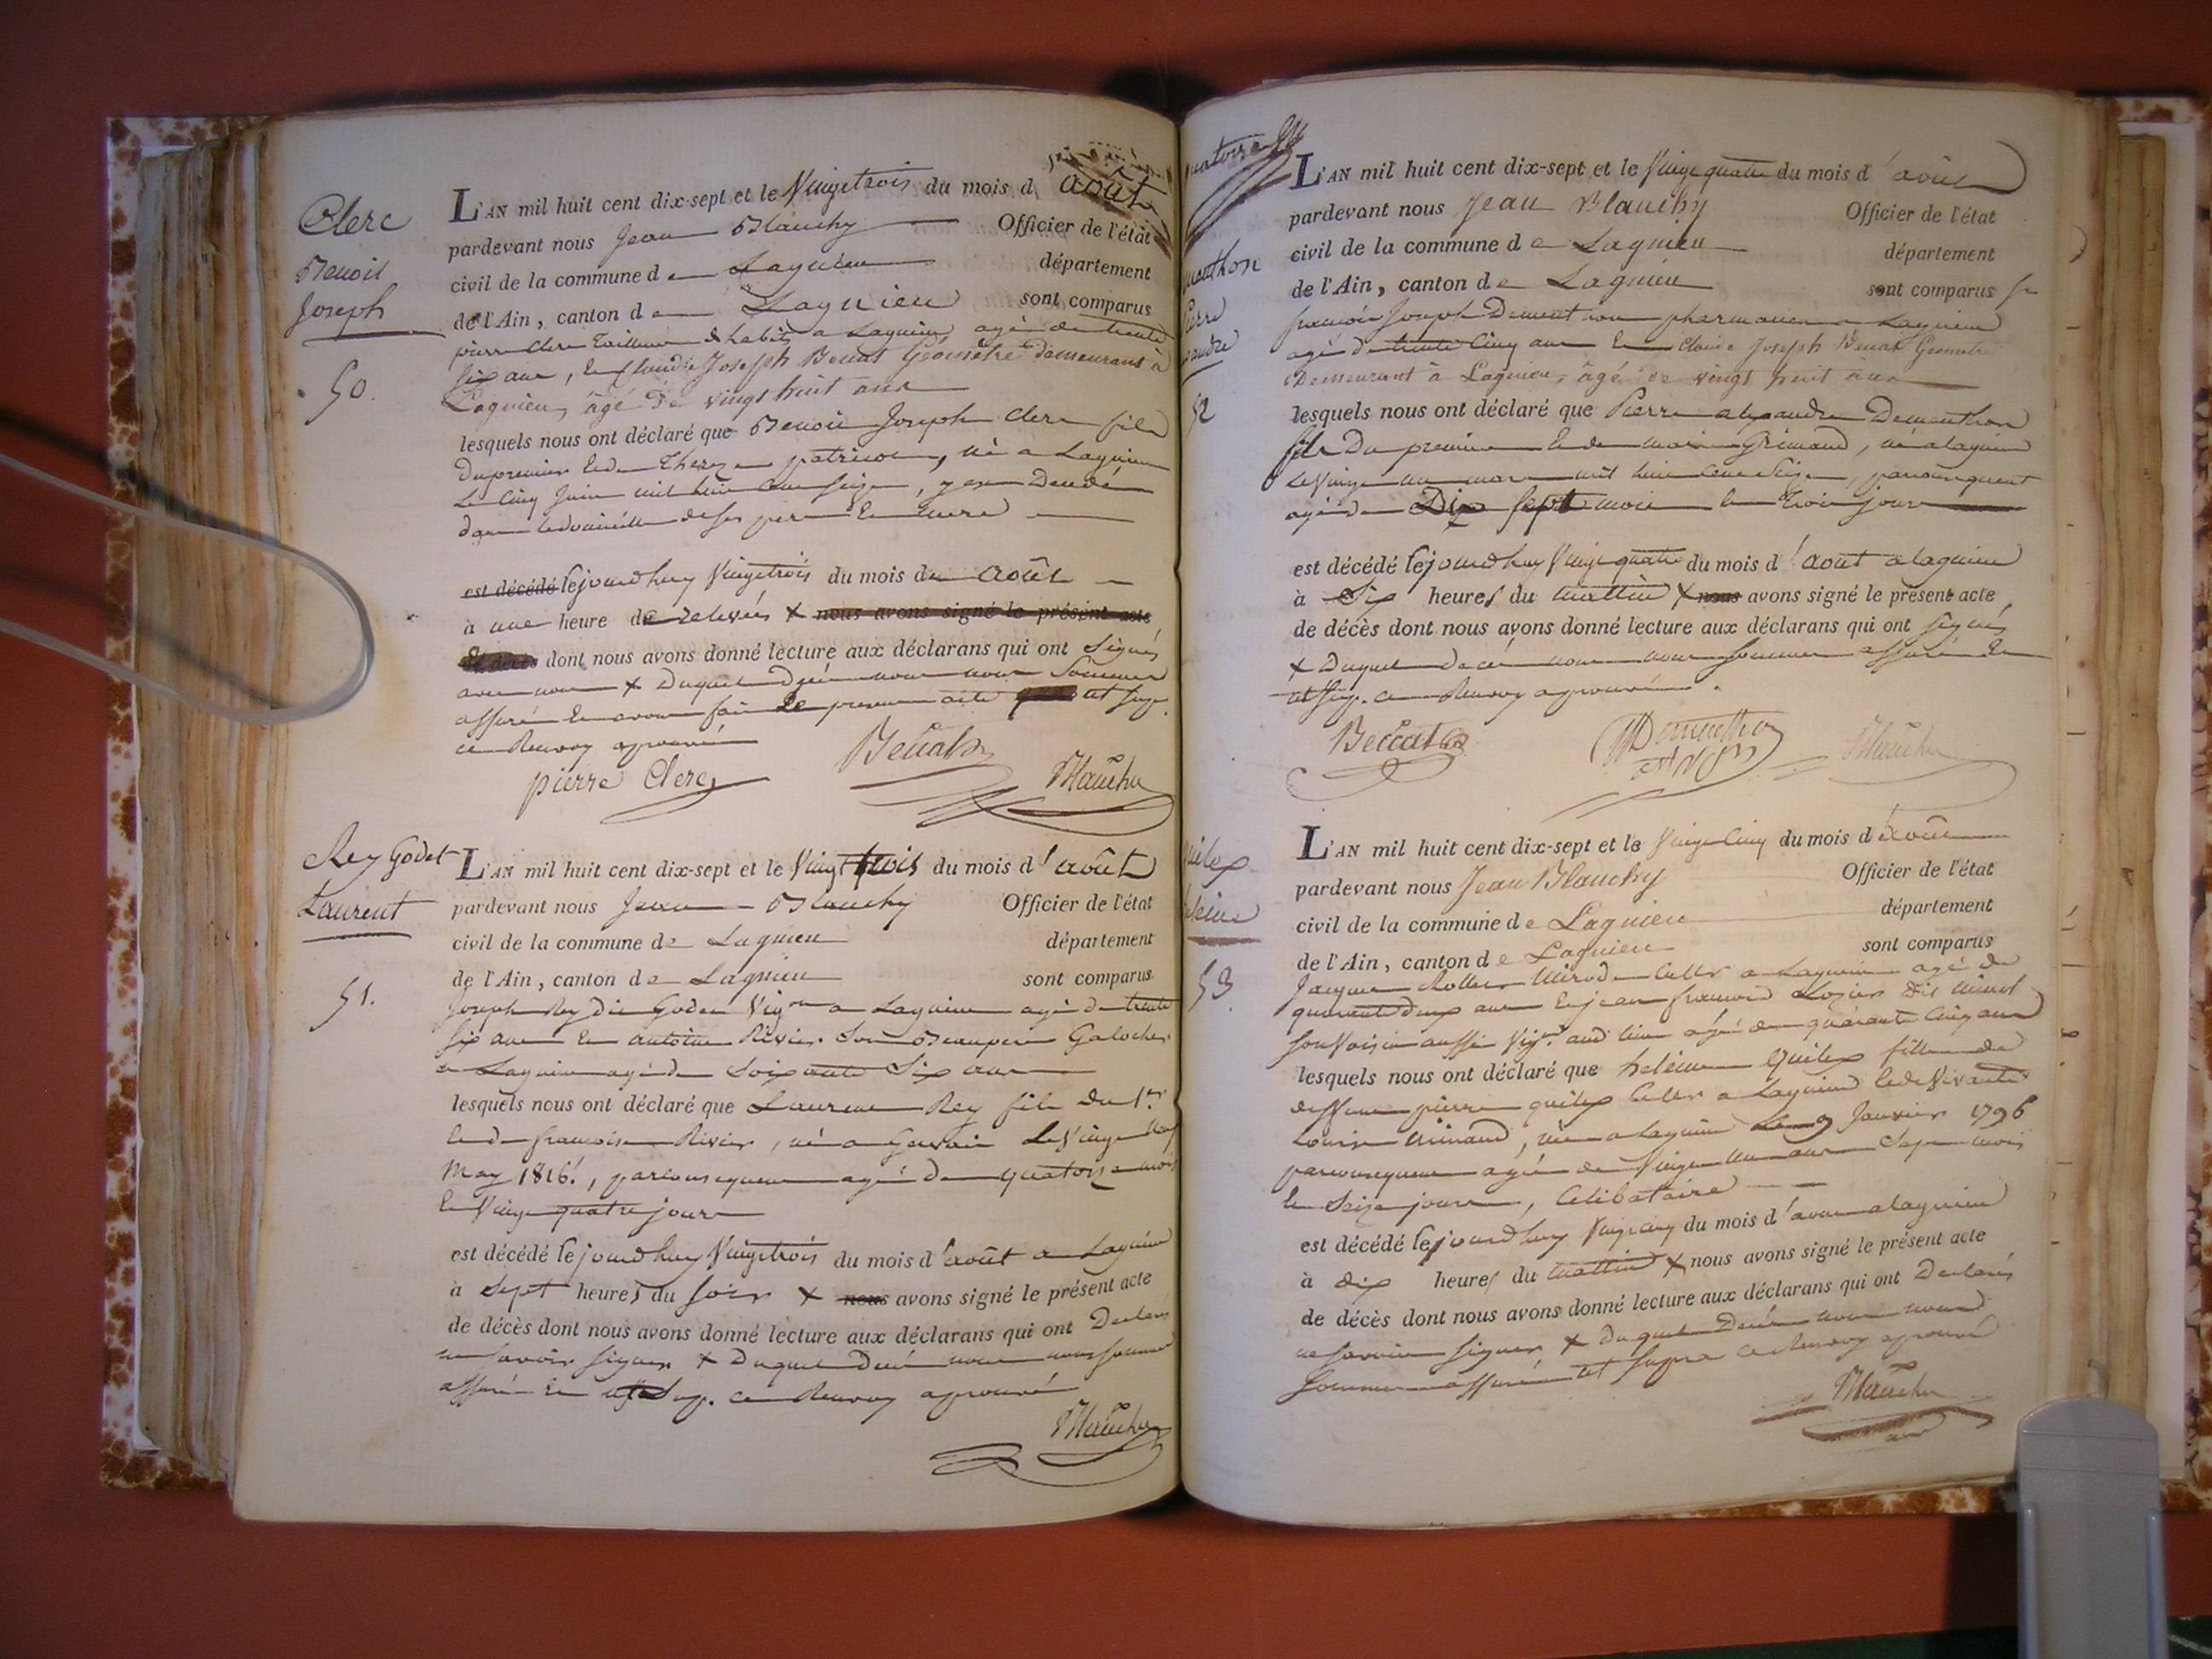 Clerc
Benoit
Joseph
50.
L'AN mil huit cent dix-sept et le Vingttrois du mois d août
pardevant nous Jean Blanchy Officier de l'état
civil de la commune de Lagnieu département
de l'Ain, canton de Lagnieu sont comparus
pierre Clerc Tailleur d'habits a Lagnieu agé de trente
six ans, et Claude Joseph Beccat Géomètre demeurant à
Lagnieu, âgé de vingt huit ans
lesquels nous ont déclaré que Benoit Joseph Clerc fils
du premier et de Thereze patricot, né a Lagnieu
Le Cinq Juin mil huit cent seize, y est Decedé
dans le domicille de ses pere et mere
est décédé cejourdhuy Vingttrois du mois de Août
à une heure de relevée X nous avons signé le présent acte
de décès dont nous avons donné lecture aux déclarans qui ont signés
avec nous X Duquel Décès nous nous sommes
assuré et avons fait le present acte ut sup.
ce Renvoy aprouvé
pierre Clerc Beccat Blanchy
Rey Godet
Laurent
51.
L'AN mil huit cent dix-sept et le Vingt trois du mois d'août
pardevant nous Jean Blanchy Officier de l'état
civil de la commune de Lagnieu département
de l'Ain, canton de Lagnieu sont comparus
Joseph Rey dit Godet Vig.on a Lagnieu agé de trente
six ans et antoine Rivier son Beaupere Galocher
a Lagnieu agé de Soixante Six ans
lesquels nous ont déclaré que Laurent Rey fils du 1.er
et de francoise Rivier, né a Le Vingt neuf
May 1816, parconsequent agé de quatorze mois
et Vingt quatre jours
est décédé cejourdhuy Vingttrois du mois d'août a Lagnieu
à Sept heures du soir X nous avons signé le présent acte
de décès dont nous avons donné lecture aux déclarans qui ont Declaré
ne savoir signer X Duquel Decé nous nous sommes
assuré et ut Sup. ce Renvoy aprouvé
Blanchy
quatorze
menthon
Pierre
xandre
52
L'AN mil huit cent dix-sept et le Vingt quatre du mois d'août
pardevant nous Jean Blanchy Officier de l'état
civil de la commune de Lagnieu département
de l'Ain, canton de Lagnieu sont comparus Sr
francois Joseph Dementhon pharmacien a Lagnieu
agé de trente Cinq ans et Claude Joseph Beccat Geometre
Demeurant à Lagnieu, âgé de vingt huit ans
lesquels nous ont déclaré que Pierre alexandre Dementhon
fils Du premier et de marie Grimaud, né a lagnieu
Le Vingt un mars mil huit cent Seize, parconsequent
agé de Dix Sept mois et trois jours
est décédé cejourdhuy Vingt quatre du mois d'août a lagnieu
à Six heures du mattin X nous avons signé le présent acte
de décès dont nous avons donné lecture aux déclarans qui ont signés
X Duquel decé nous nous sommes assuré et
ut sup. ce Renvoy aprouvé.
Beccat Dementhon Blanchy
quilex
heleine
53
L'AN mil huit cent dix-sept et le Vingt Cinq du mois d'août
pardevant nous Jean Blanchy Officier de l'état
civil de la commune de Lagnieu département
de l'Ain, canton de Lagnieu sont comparus
Jacques Cultr a Lagnieu agé de
quarante deux ans et jean francois Lozier dit
son Voisin aussi Vig.n aud. lieu agé de quarante Cinq ans
lesquels nous ont déclaré que heleine quilex fille de
deffunt pierre quilex Cultr a Lagnieu et de Vivante
Louise, née a Lagnieu Le 9 Janvier 1796
parconsequent agée de Vingt un ans Sept mois
et Seize jours, Celibataire
est décédé cejourdhuy Vingtcinq du mois d'août a lagnieu
à dix heures du mattin X nous avons signé le présent acte
de décès dont nous avons donné lecture aux déclarans qui ont Declarés
ne savoir signer X Duquel Decé nous nous
sommes assuré ut supra ce Renvoy aprouvé
Blanchy